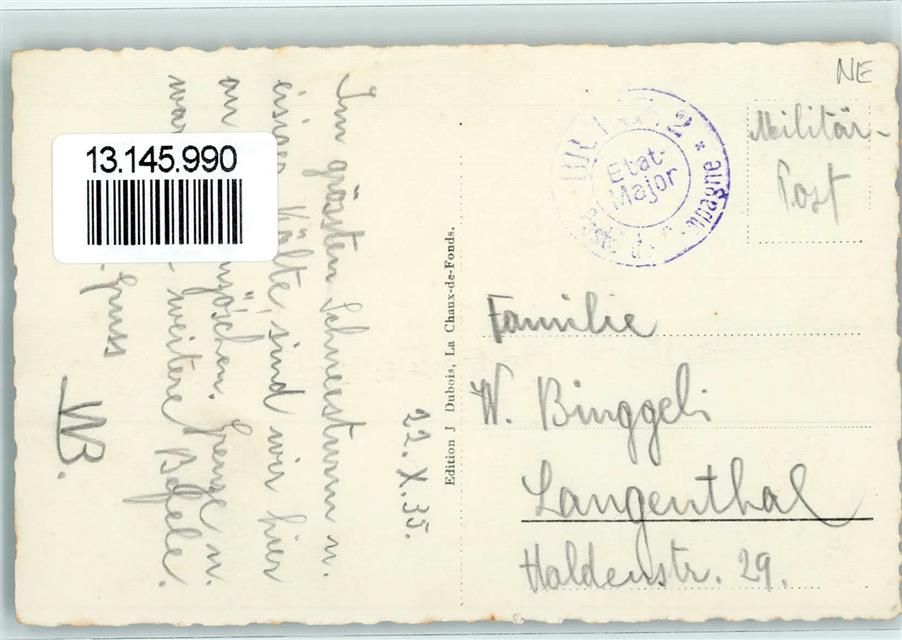 NE
Militär-
Post
Etat-
Major
13.145.990
22. X. 35.
Im grössten Schneesturm u.
eisiger Kälte, sind wir hier
an Grenze u.
weitere Befehle.
Gruss
WB.
Edition J Dubois, La Chaux-de-Fonds.
Familie
W. Binggeli
Langenthal
Haldenstr. 29.